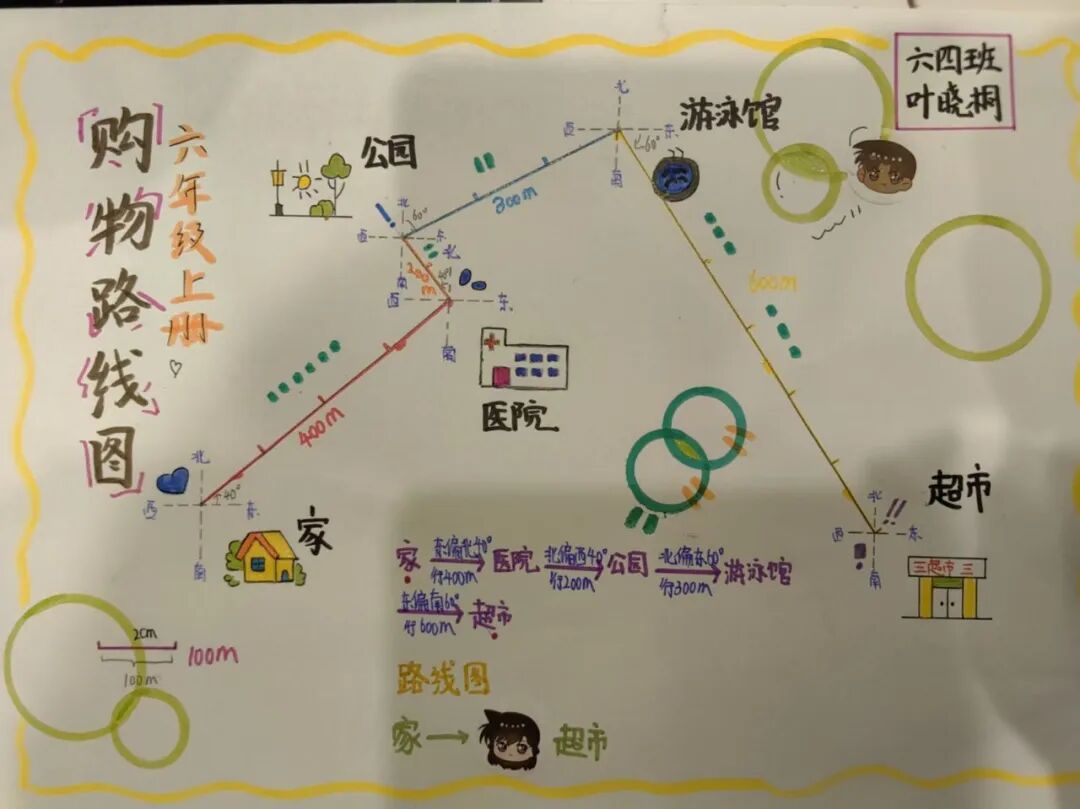 购物路线图
六年级上册
六四班
叶晓桐
公园
游泳馆
北
西 东
南
60°
300m
北
西 东
南
60°
200m
北
西 东
南
40°
600m
医院
400m
北
西 东
南
40°
家
超市
北
西 东
南
三超市三
家 东偏北40° 行400m 医院 北偏西40° 行200m 公园 北偏东60° 行300m 游泳馆
东偏南60° 行600m 超市
2cm
100m
100m
路线图
家 → 超市